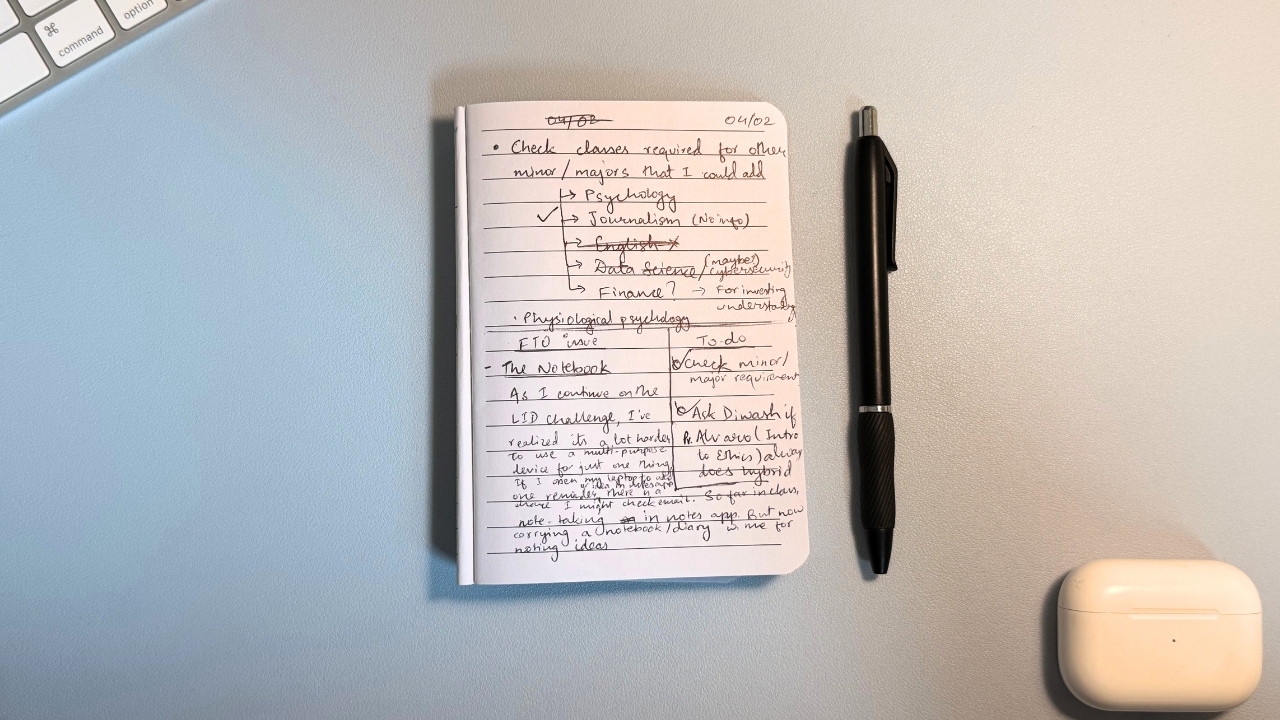 ⌘
command
option
04/02 04/02
• Check classes required for other
minor/majors that I could add
→ Psychology
✓ → Journalism (No info)
→ English ×
→ Data Science/cybersecurity (maybe?)
→ Finance? → For investing
understanding
· Physiological psychology
ETO issue
- The Notebook
As I continue on the
LID challenge, I've
realized its a lot harder
to use a multi-purpose
device for just one thing
If I open my laptop to add
one reminder, there is a
chance I might check email. So far in class,
note-taking in notes app. But now
carrying a notebook/diary w. me for
noting ideas
To-do
Check minor/
major requirement
Ask Diwash if
Pr. Alvaro (Intro
to Ethics) always
does hybrid